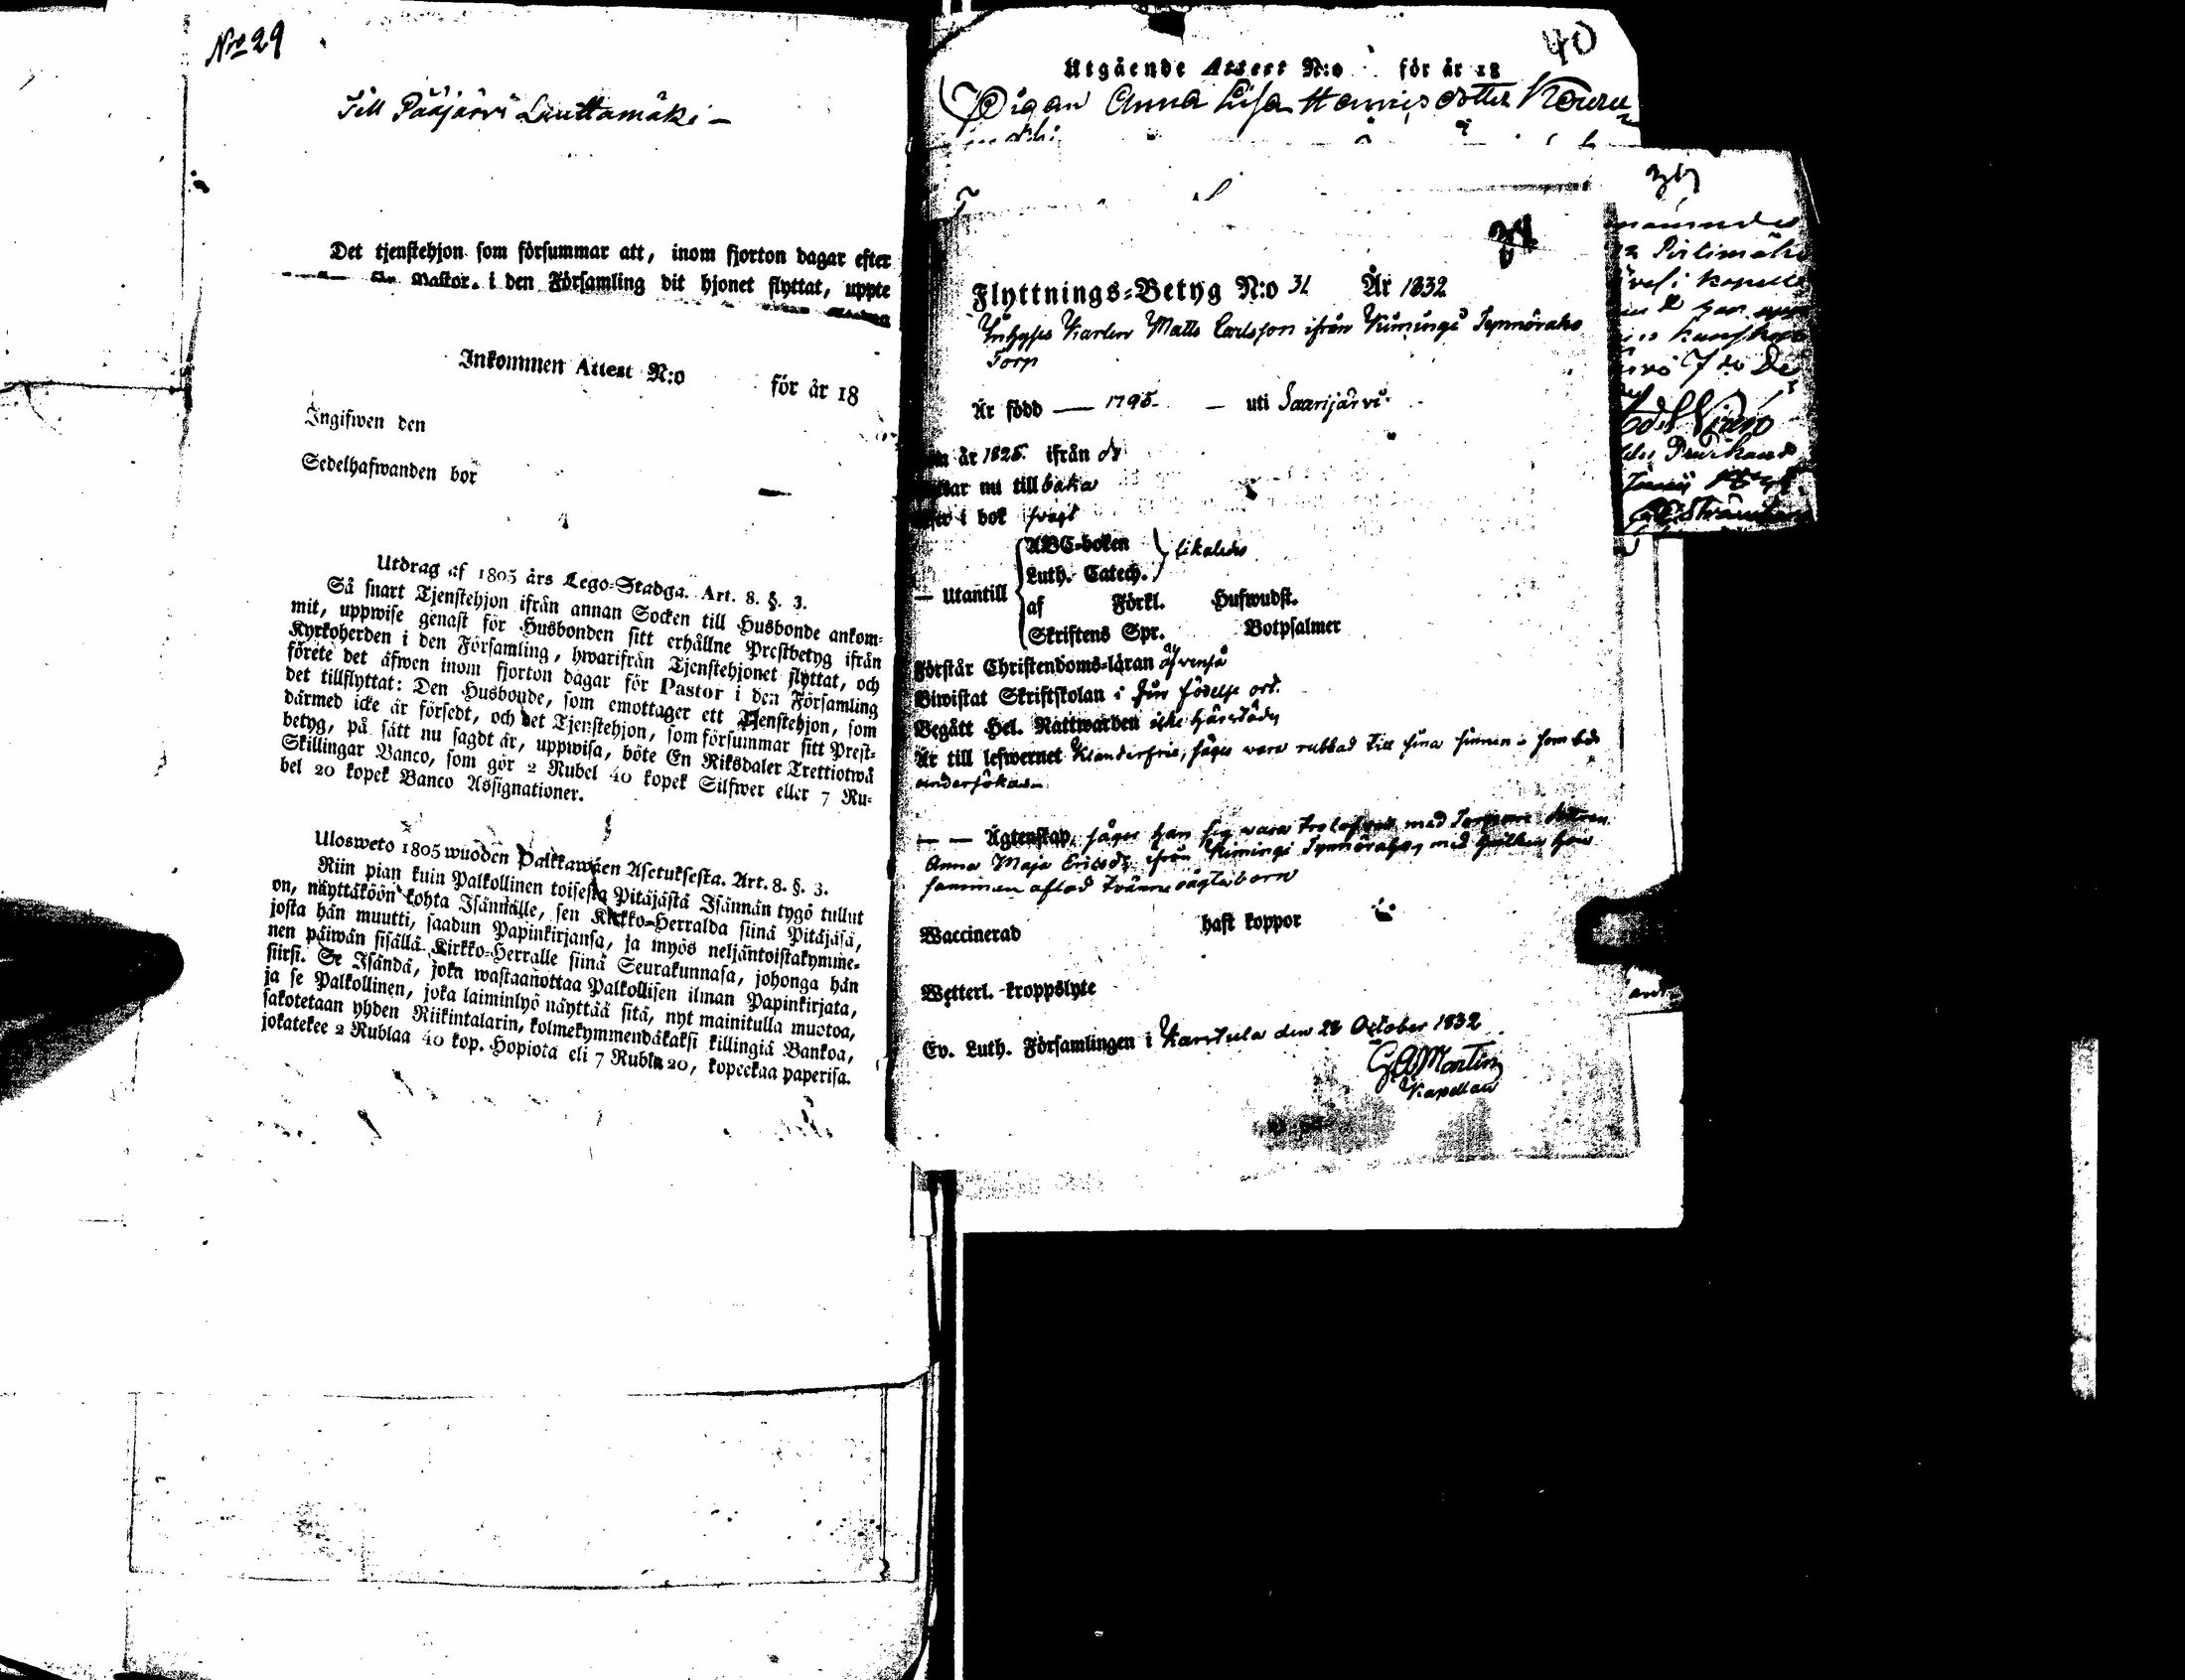 Nro 29
Till Pääjärvi Lauttamäki –
Det tjenstehjon som försummar att, inom fjorton dagar efter
Pastor i den Församling dit hjonet flyttat, uppte
Inkommen Attest N:o för år 18
Ingifwen den
Sedelhafwanden bor
Utdrag af 1805 års Lego-Stadga. Art. 8. §. 3.
Så snart Tjenstehjon ifrån annan Socken till Husbonde ankom-
mit, uppwise genast för Husbonden sitt erhållne Prestbetyg ifrån
Kyrkoherden i den Församling, hwarifrån Tjenstehjonet flyttat, och
förete det äfwen inom fjorton dagar för Pastor i den Församling
det tillflyttat: Den Husbonde, som emottager ett Tjenstehjon, som
därmed icke är försedt, och det Tjenstehjon, som försummar sitt Prest-
betyg, på sätt nu sagdt är, uppwisa, böte En Riksdaler Trettiotwå
Skillingar Banco, som gör 2 Rubel 40 kopek Silfwer eller 7 Ru-
bel 20 kopek Banco Assignationer.
Ulosweto 1805 wuoden Palkkawäen Asetuksesta. Art. 8. §. 3.
Riin pian kuin Palkollinen toisesta Pitäjästä Isännän tygö tullut
on, näyttäköön kohta Isännälle, sen Kirkko-Herralda siinä Pitäjäsä,
josta hän muutti, saadun Papinkirjansa, ja myös neljäntoistakymme-
nen päiwän sisällä Kirkko-Herralle siinä Seurakunnasa, johonga hän
siirsi. Se Isändä, joka wastaanottaa Palkollisen ilman Papinkirjata,
ja se Palkollinen, joka laiminlyö näyttää sitä, nyt mainitulla muotoa,
sakotetaan yhden Riikintalarin, kolmekymmendäkaksi killingiä Bankoa,
jokatekee 2 Rublaa 40 kop. Hopiota eli 7 Rubla 20, kopeckaa paperisa.
40
Utgående Attest N:o för år 18
Pigan Anna Lisa Hannis dotter
Flyttnings-Betyg N:o 31 År 1832
Inhyses Karlen Matts Carlsson ifrån Kimingi Synnöraho
Torp
Är född — 1795 — uti Saarijärvi
år 1825 ifrån do
nu till baka
i bok svagt
— Utantill ABC-boken likaledes
Luth. Catech.
af Förkl. Hufwudst.
Skriftens Spr. Botpsalmer
Förstår Christendoms-läran äfvenså
Biwistat Skriftskolan i sin födelse ort.
Begått Hel. Nattwarden icke härstädes
Är till lefwernet Klanderfri, säges vara rubbad till sina sinnen – som bör
undersökas
— — Ägtenskap, säger han sig vara trolofvad med dottren
Anna Maja Ericsdr ifrån Kimingi Synnöraho, med hvilken han
samman aflad tvänne oägta barn
Waccinerad haft koppor
Wetterl. kroppslyte
Ev. Luth. Församlingen i Karstula den 28 October 1832
Martin
Kapellan